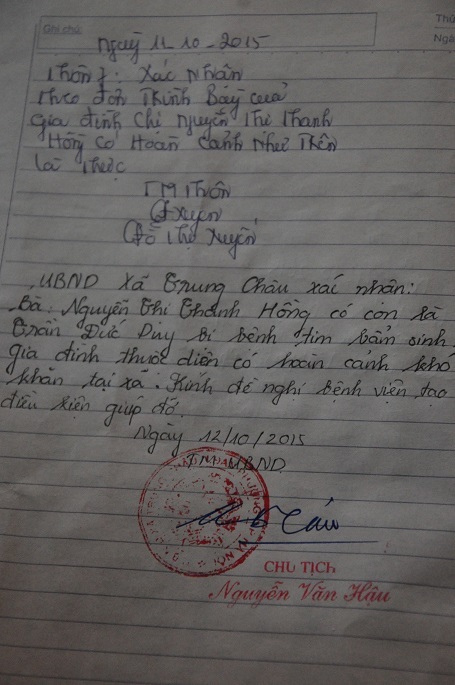 Ghi chú:
Thứ
Ngày
Ngày 11-10-2015
Thôn 7: Xác Nhân
Theo đơn Trình Bày của
gia đình Chi Nguyễn Thi Thanh
Hồng có Hoàn Cảnh Như Trên
là Thực
TM Thôn
Xuyến
Đỗ Thị Xuyến
UBND Xã Trung Châu xác nhân:
Bà: Nguyễn Thi Thanh Hồng có con là
Trần Đức Duy bi bệnh tim bẩm sinh.
gia đình thuộc diện có hoàn cảnh khó
khăn tại xã. Kính đề nghi bệnh viện tạo
điều kiện giúp đỡ.
Ngày 12/10/2015
TM UBND
CHỦ TỊCH
Nguyễn Văn Hậu